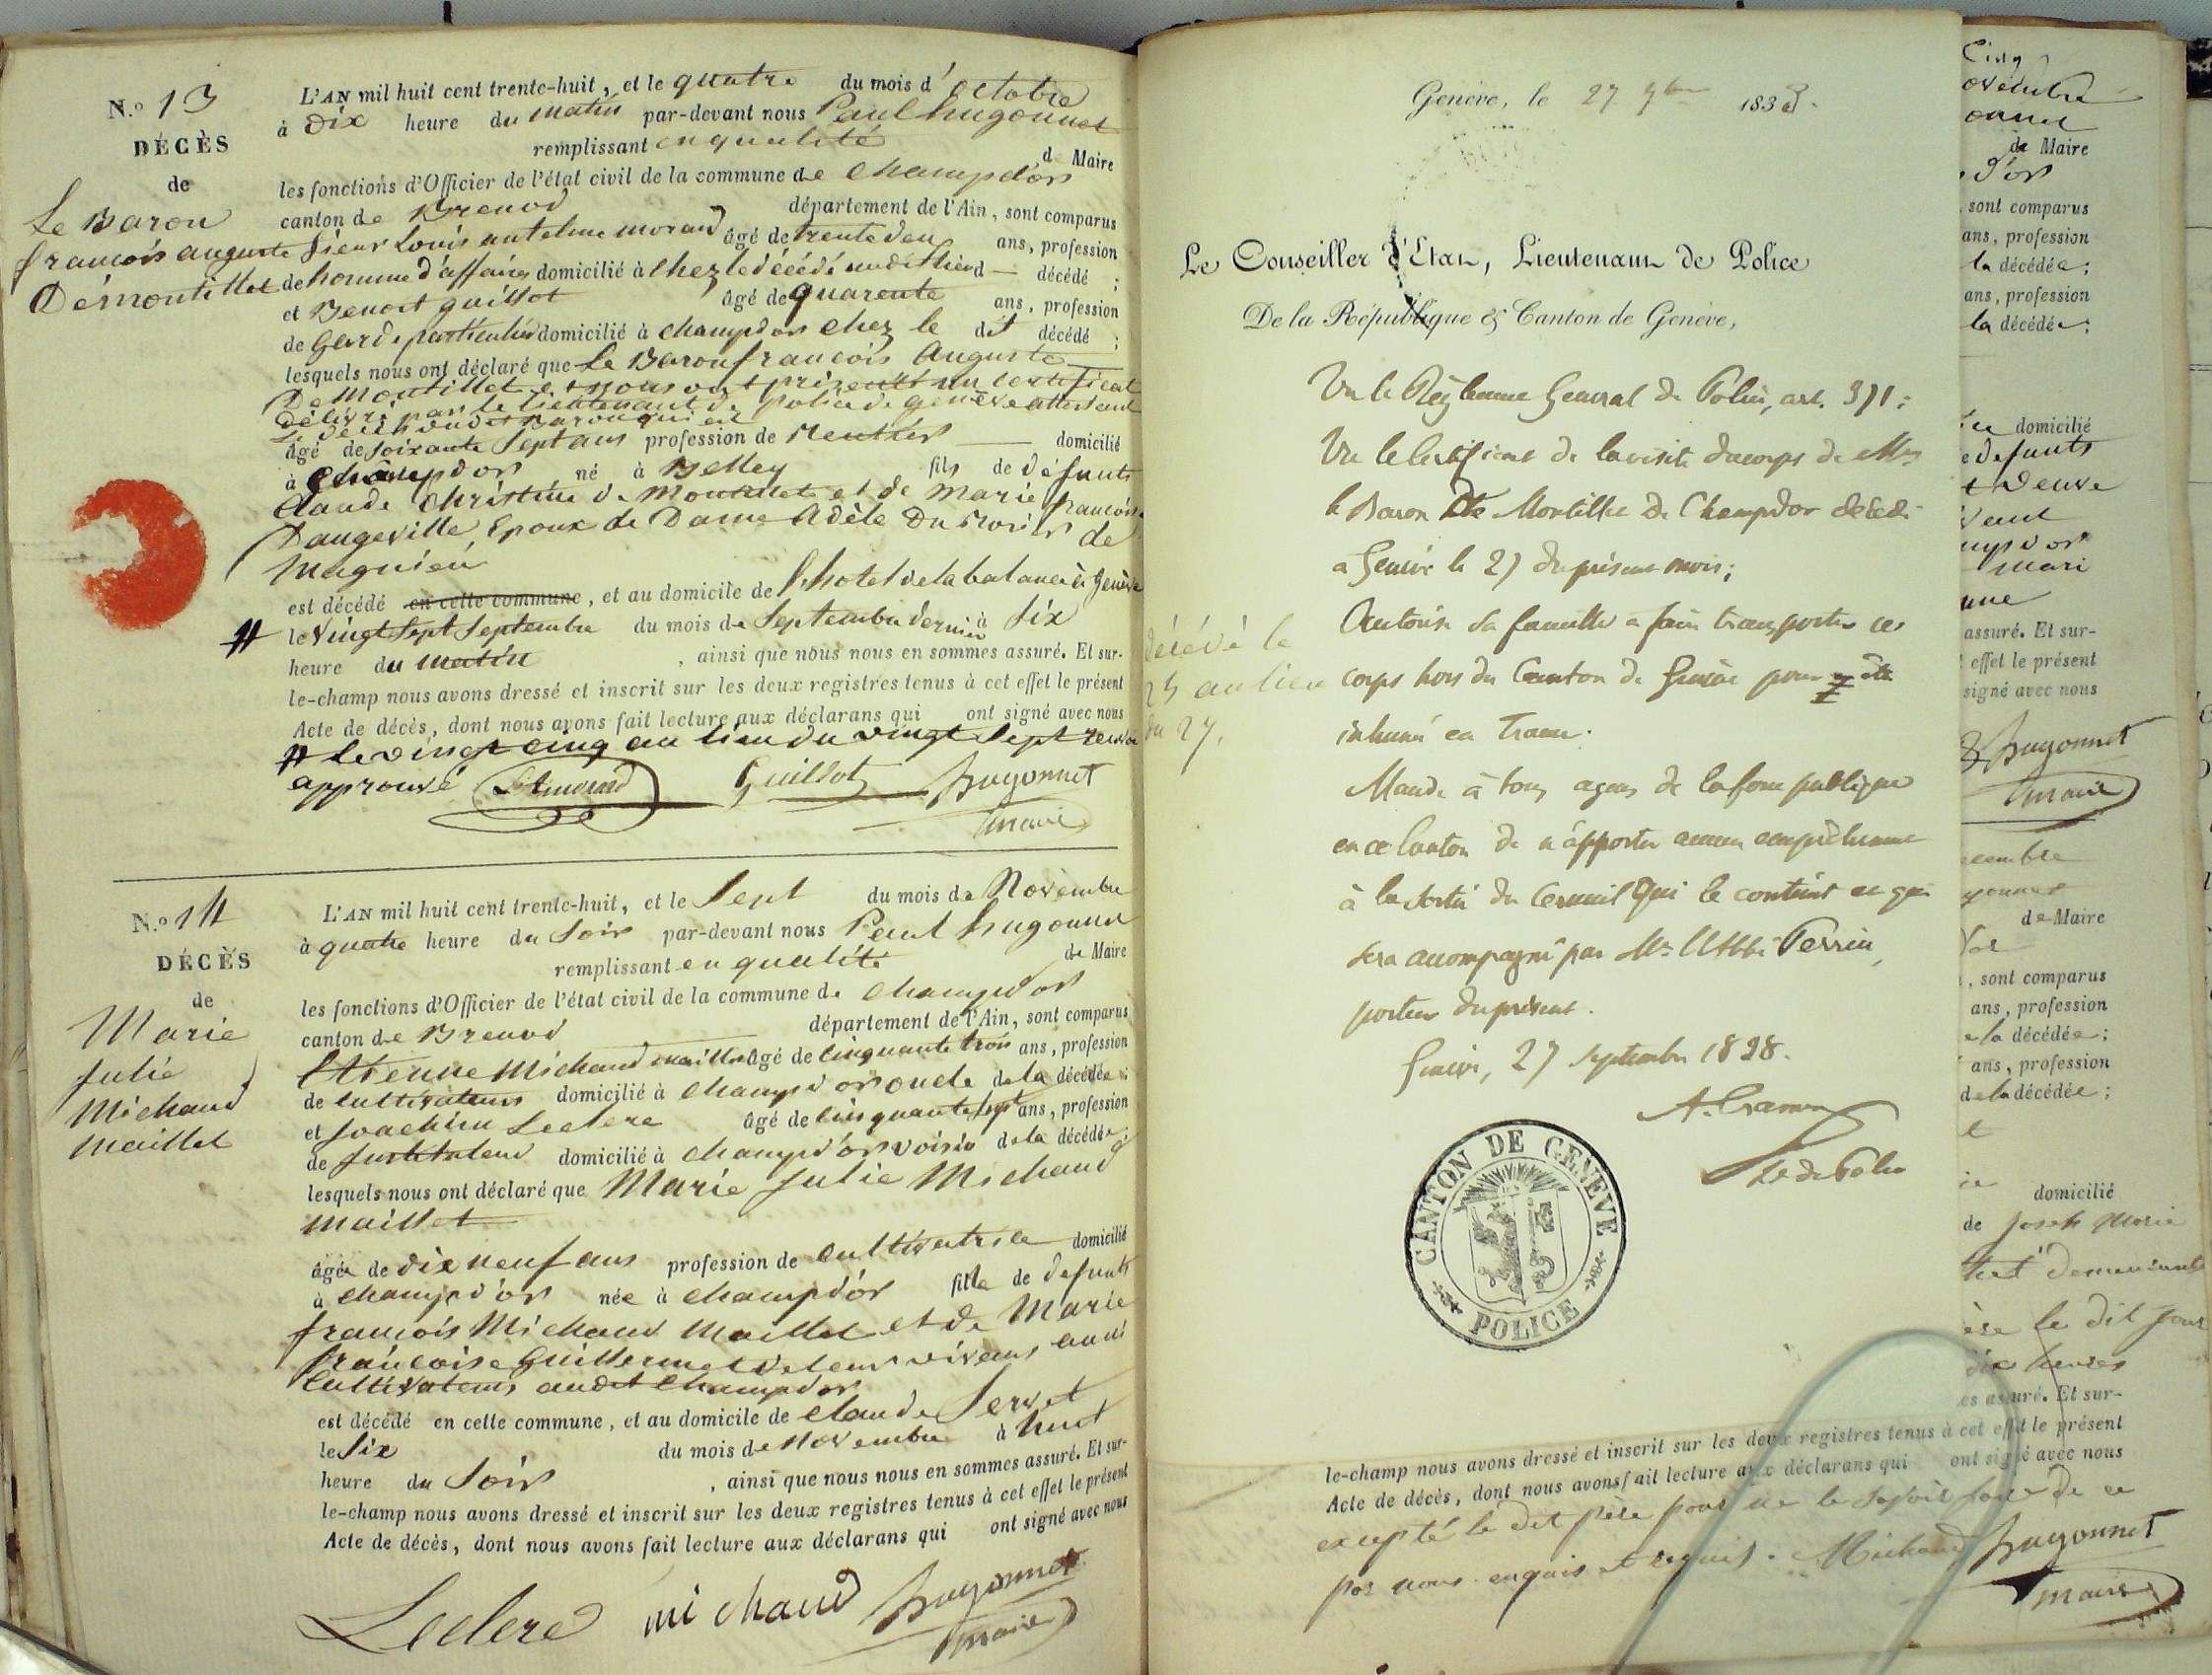 N.o 13
DÉCÈS
de
Le Baron
francois auguste
Démontillet
L'AN mil huit cent trente-huit, et le quatre du mois d'octobre
à dix heure du matin par-devant nous Paul hugonnet
remplissant en qualité de Maire
les fonctions d'Officier de l'état civil de la commune de champdor
canton de Brenod département de l'Ain, sont comparus
sieur Louis antelme morand âgé de trente deux ans, profession
de homme d'affaires domicilié à chez le décédé décédé ;
et Benoit guillot âgé de quarente ans, profession
de garde particulier domicilié à champdor chez le dit décédé ;
lesquels nous ont déclaré que Le Baron francois Auguste
De Montillet et nous ont présenté un certificat
délivré par le lieutenant de police de genève attestant
le décès du dit Baron qui est
âgé de soixante sept ans profession de Rentier domicilié
à champdor né à Belley fils de défunts
Claude Christine de Montillet et de marie francoise
Dangeville, Epoux de Dame Adèle Du Rosier de
Magnieu
est décédé en cette commune, et au domicile de l'hotel de la balance à Genève
le vingt sept septembre du mois de septembre dernier à six
heure du matin, ainsi que nous nous en sommes assuré. Et sur-
le-champ nous avons dressé et inscrit sur les deux registres tenus à cet effet le présent
Acte de décès, dont nous avons fait lecture aux déclarans qui ont signé avec nous
# le vingt cinq au lieu du vingt sept
approuvé Guillot hugonnet
maire
N.o 14
DÉCÈS
de
Marie
Julie
Michaud
Maillet
L'AN mil huit cent trente-huit, et le Sept du mois de Novembre
à quatre heure du Soir par-devant nous Paul hugonnet
remplissant en qualité de Maire
les fonctions d'Officier de l'état civil de la commune de champdor
canton de Brenod département de l'Ain, sont comparus
Etienne Michaud maillet âgé de cinquante trois ans, profession
de cultivateur domicilié à champdor oncle de la décédée ;
et Joachim Leclerc âgé de cinquante sept ans, profession
de Instituteur domicilié à champd'or voisin de la décédée ;
lesquels nous ont déclaré que Marie Julie Michaud
maillet
âgée de dix neuf ans profession de cultivatrice domicilié
à champd'or née à champd'or fille de defunts
francois Michaud Maillet et de Marie
francoise Guillermet de leur vivant
cultivateurs audit champdor
est décédé en cette commune, et au domicile de claude Servet
le Six du mois de Novembre à huit
heure du Soir, ainsi que nous nous en sommes assuré. Et sur-
le-champ nous avons dressé et inscrit sur les deux registres tenus à cet effet le présent
Acte de décès, dont nous avons fait lecture aux déclarans qui ont signé avec nous
Leclerc michaud hugonnet
maire
Genève, le 27 7bre 1838.
Le Conseiller d'Etat, Lieutenant de Police
De la République & Canton de Genève,
Vu le Règlement General de Police, art. 371 ;
Vu le Certificat de la visite du corps de Mr
le Baron De Montillet de Champdor décédé
a Genève le 27 du présent mois ;
Autorise sa famille a faire transporter ce
corps hors du Canton de Genève pour y être
inhumé en France.
Mande à tous agens de la force publique
en ce Canton de n'apporter aucun empêchement
à la sortie du Cercueil qui le contient et qui
sera accompagné par Mr. l'Abbé Perrin,
porteur du présent.
Genève, 27 Septembre 1838.
A. Cramer
Lt de Police
décédé le
25 au lieu
du 27.
CANTON DE GENEVE
POLICE
le-champ nous avons dressé et inscrit sur les deux registres tenus à cet effet le présent
Acte de décès, dont nous avons fait lecture aux déclarans qui ont signé avec nous
excepté le dit père pour ne le savoir faire de ce
par nous enquis et requis. Michaud hugonnet
maire
de Maire
d'or
sont comparus
ans, profession
la décédée ;
ans, profession
la décédée ;
domicilié
defunts
mari
assuré. Et sur-
effet le présent
signé avec nous
hugonnet
maire
de Maire
, sont comparus
ans, profession
de la décédée ;
ans, profession
de la décédée ;
domicilié
de Joseph Marie
le dit jour
dix heures
assuré. Et sur-